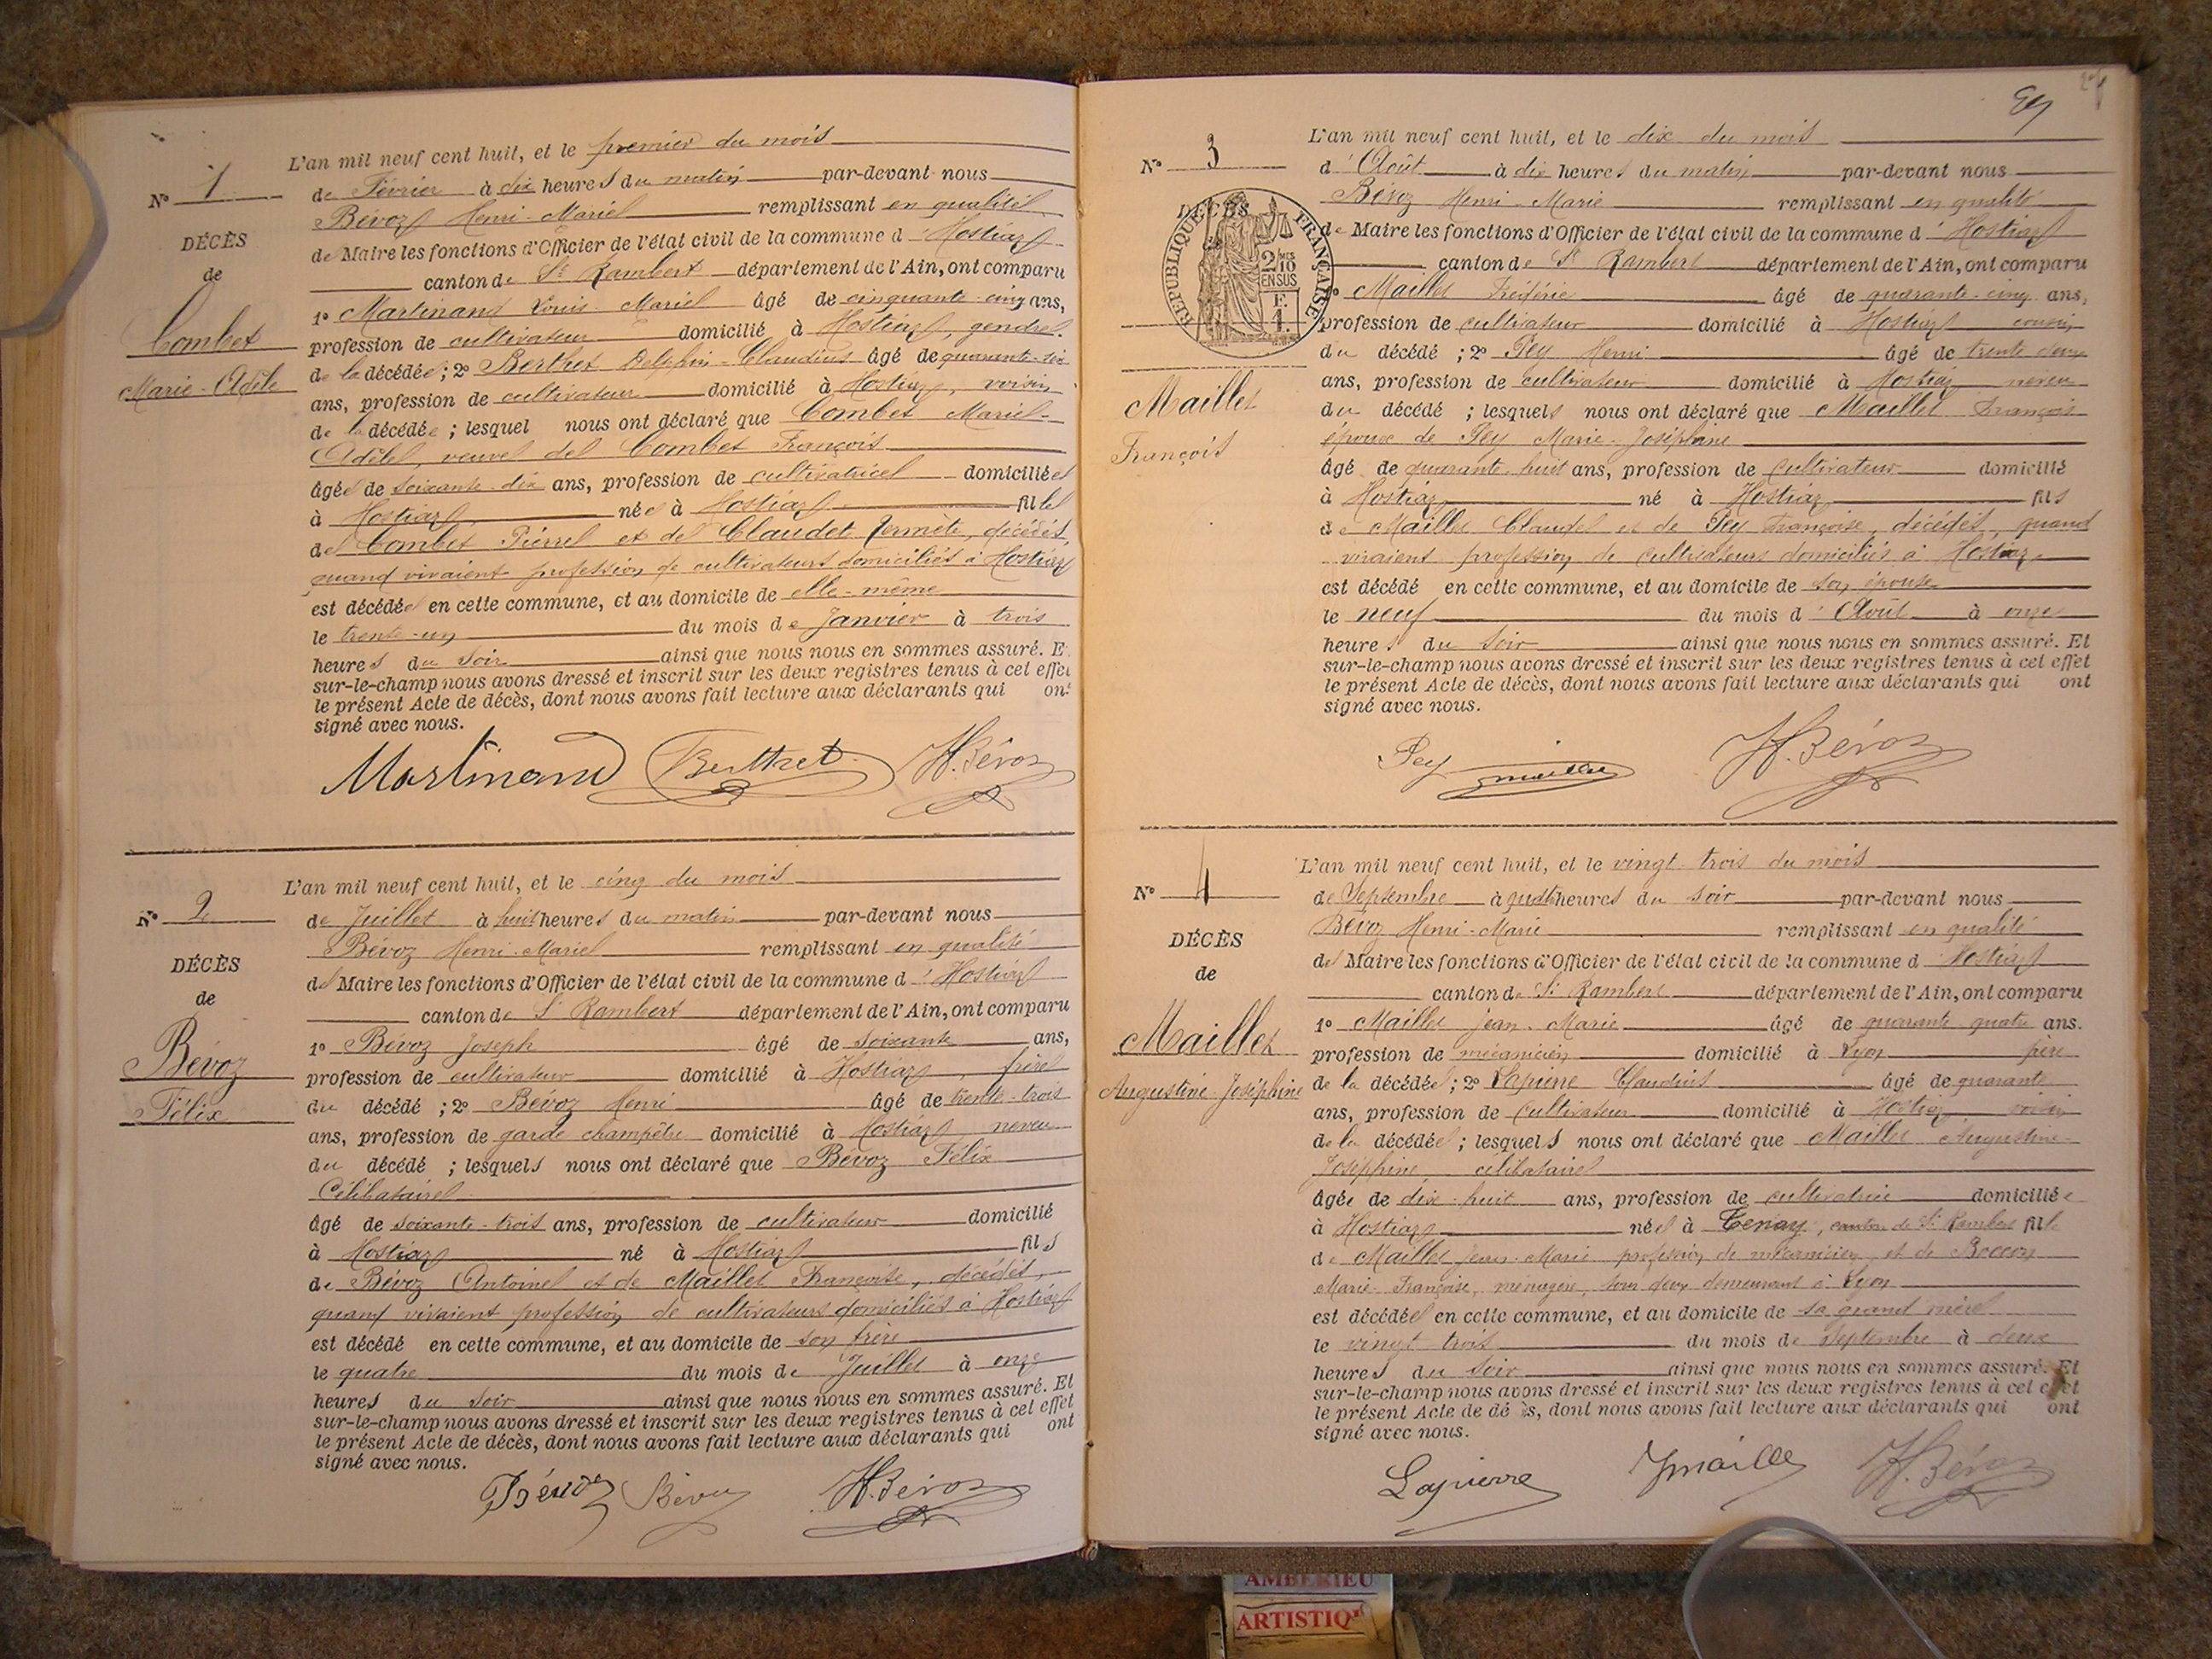 N° 1
DÉCÈS
de
Combet
Marie-Adèle
L'an mil neuf cent huit, et le premier du mois
de Février à dix heures du matin par-devant nous
Bévoz Henri-Marie remplissant en qualité
de Maire les fonctions d'Officier de l'état civil de la commune d'Hostiaz
canton de St Rambert département de l'Ain, ont comparu
1° Martinand Louis Marie âgé de cinquante-cinq ans,
profession de cultivateur domicilié à Hostiaz, gendre
de la décédée ; 2° Berthet Delphin-Claudius âgé de quarante-six
ans, profession de cultivateur domicilié à Hostiaz, voisin
de la décédée ; lesquel nous ont déclaré que Combet Marie-
Adèle, veuve de Combet François
âgée de soixante-dix ans, profession de cultivatrice domiciliée
à Hostiaz née à Hostiaz fille
de Combet Pierre et de Claudet décédés,
quand vivaient profession de cultivateurs domiciliés à Hostiaz
est décédée en cette commune, et au domicile de elle-même
le trente-un du mois de Janvier à trois
heures du soir ainsi que nous nous en sommes assuré. E
sur-le-champ nous avons dressé et inscrit sur les deux registres tenus à cet effet
le présent Acte de décès, dont nous avons fait lecture aux déclarants qui ont
signé avec nous.
Martinand Berthet H. Bévoz
N° 2
DÉCÈS
de
Bévoz
Félix
L'an mil neuf cent huit, et le cinq du mois
de Juillet à huit heures du matin par-devant nous
Bévoz Henri-Marie remplissant en qualité
de Maire les fonctions d'Officier de l'état civil de la commune d'Hostiaz
canton de St Rambert département de l'Ain, ont comparu
1° Bévoz Joseph âgé de soixante ans,
profession de cultivateur domicilié à Hostiaz, frère
du décédé ; 2° Bévoz Henri âgé de trente-trois
ans, profession de garde champêtre domicilié à Hostiaz neveu
du décédé ; lesquels nous ont déclaré que Bévoz Félix
Célibataire
âgé de soixante-trois ans, profession de cultivateur domicilié
à Hostiaz né à Hostiaz fils
de Bévoz Antoine et de Maillet Françoise, décédés,
quand vivaient profession de cultivateurs domiciliés à Hostiaz
est décédé en cette commune, et au domicile de son frère
le quatre du mois de Juillet à onze
heures du soir ainsi que nous nous en sommes assuré. Et
sur-le-champ nous avons dressé et inscrit sur les deux registres tenus à cet effet
le présent Acte de décès, dont nous avons fait lecture aux déclarants qui ont
signé avec nous.
Bévoz Bévoz H. Bévoz
N° 3
DÉCÈS
RÉPUBLIQUE FRANÇAISE
2/10 EN SUS
Maillet
François
L'an mil neuf cent huit, et le dix du mois
d'Août à dix heures du matin par-devant nous
Bévoz Henri-Marie remplissant en qualité
de Maire les fonctions d'Officier de l'état civil de la commune d'Hostiaz
canton de St Rambert département de l'Ain, ont comparu
1° Maillet Frédéric âgé de quarante-cinq ans,
profession de cultivateur domicilié à Hostiaz cousin
du décédé ; 2° Pey Henri âgé de trente deux
ans, profession de cultivateur domicilié à Hostiaz neveu
du décédé ; lesquels nous ont déclaré que Maillet François
époux de Pey Marie-Joséphine
âgé de quarante-huit ans, profession de cultivateur domicilié
à Hostiaz né à Hostiaz fils
de Maillet Claude et de Pey Françoise, décédés, quand
vivaient profession de cultivateurs domiciliés à Hostiaz
est décédé en cette commune, et au domicile de son épouse
le neuf du mois d'Août à onze
heures du soir ainsi que nous nous en sommes assuré. Et
sur-le-champ nous avons dressé et inscrit sur les deux registres tenus à cet effet
le présent Acte de décès, dont nous avons fait lecture aux déclarants qui ont
signé avec nous.
Pey Maillet H. Bévoz
N° 4
DÉCÈS
de
Maillet
Augustine-Joséphine
L'an mil neuf cent huit, et le vingt-trois du mois
de Septembre à quatre heures du soir par-devant nous
Bévoz Henri-Marie remplissant en qualité
de Maire les fonctions d'Officier de l'état civil de la commune d'Hostiaz
canton de St Rambert département de l'Ain, ont comparu
1° Maillet Jean-Marie âgé de quarante-quatre ans.
profession de mécanicien domicilié à Lyon père
de la décédée ; 2° Lapierre Claudius âgé de quarante
ans, profession de cultivateur domicilié à Hostiaz voisin
de la décédée ; lesquels nous ont déclaré que Maillet Augustine-
Joséphine célibataire
âgée de dix-huit ans, profession de cultivatrice domiciliée
à Hostiaz née à Tenay, canton de St Rambert fille
de Maillet Jean-Marie profession de mécanicien et de
Marie-Françoise, ménagère, tous deux demeurant à Lyon
est décédée en cette commune, et au domicile de sa grand mère
le vingt trois du mois de Septembre à deux
heures du soir ainsi que nous nous en sommes assuré. Et
sur-le-champ nous avons dressé et inscrit sur les deux registres tenus à cet effet
le présent Acte de décès, dont nous avons fait lecture aux déclarants qui ont
signé avec nous.
Lapierre Jmaillet H. Bévoz
AMBÉRIEU
ARTISTIQ